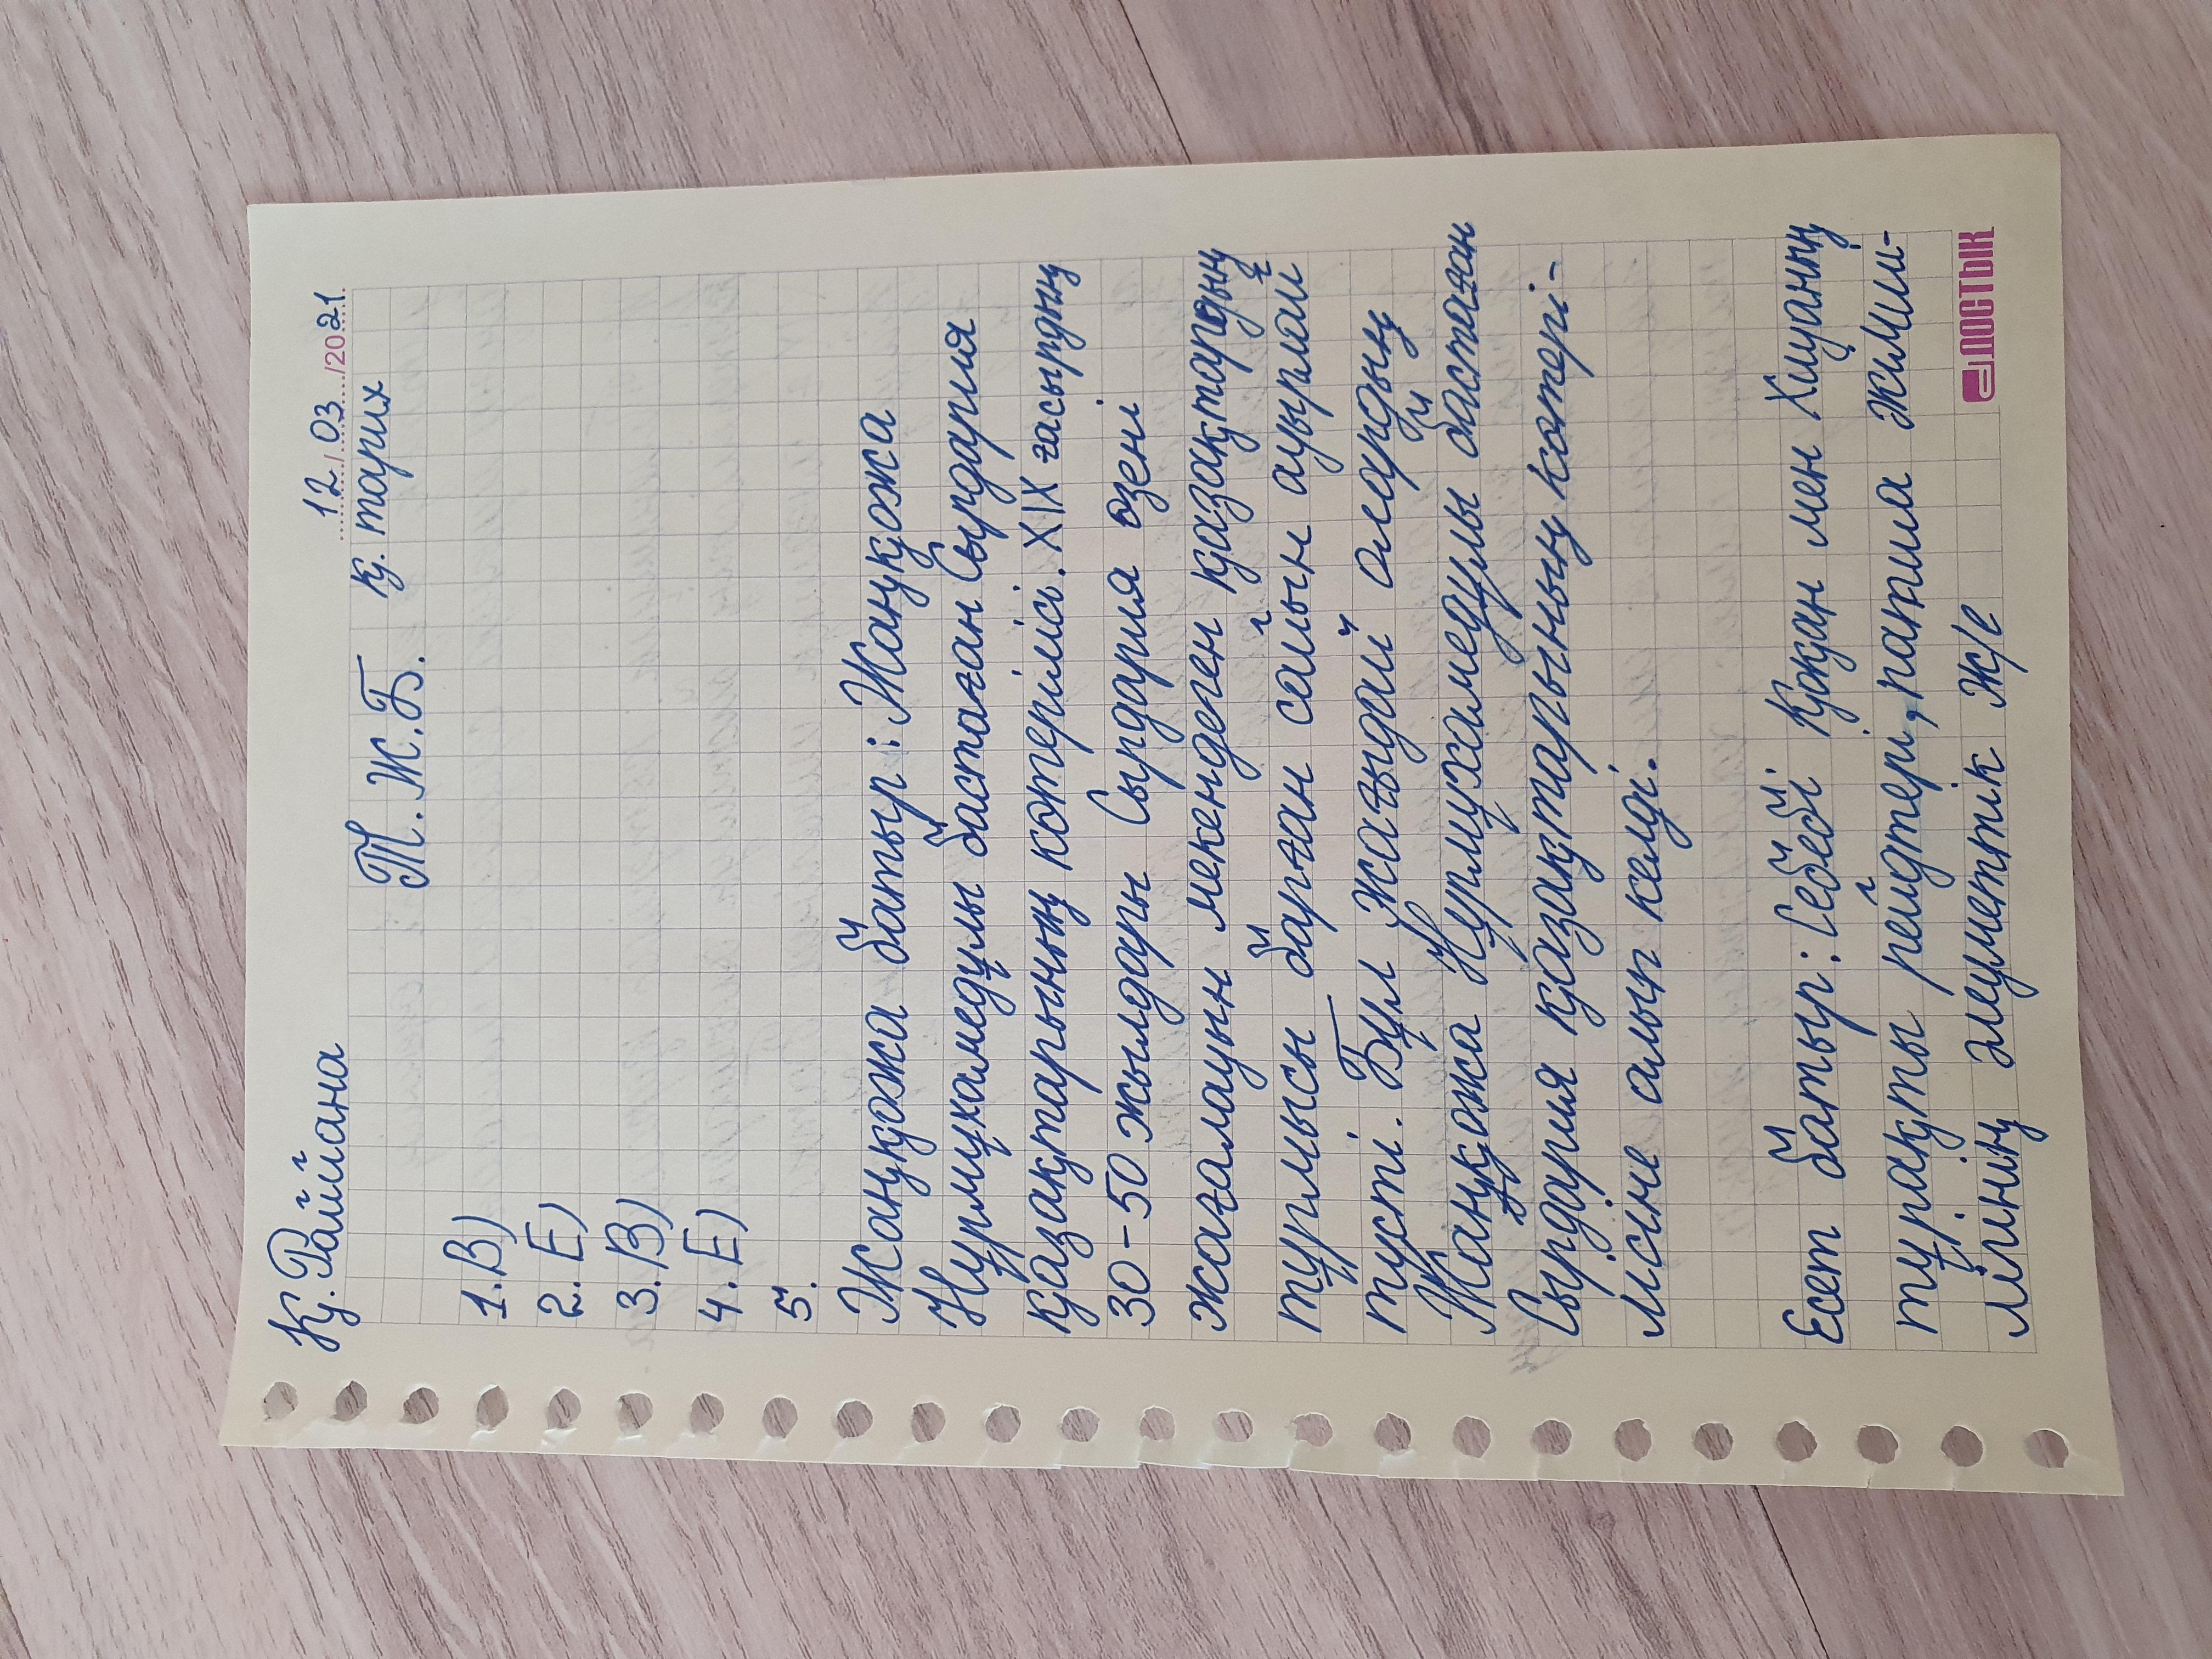 Қ. Райлана 12/03/2021
Т.Ж.Б. Қ. тарих
1. В)
2. Е)
3. В)
4. Е)
5.
Жанқожа батыр: Жанқожа
Нұрмұхамедұлы бастаған Сырдария
қазақтарының көтерілісі. XIX ғасырдың
30-50 жылдары Сырдария өзені
жағалауын мекендеген қазақтардың
тұрмысы барған сайын ауырлай
түсті. Бұл жағдай олардың
Жанқожа Нұрмұхамедұлы бастаған
Сырдария қазақтарының көтері-
лісіне алып келді.
Есет батыр: Себебі Қоқан мен Хиуаның
тұрақты рейдтері, патша әкімші-
лігінің әлеуметтік ж/е
ДОСТЫК